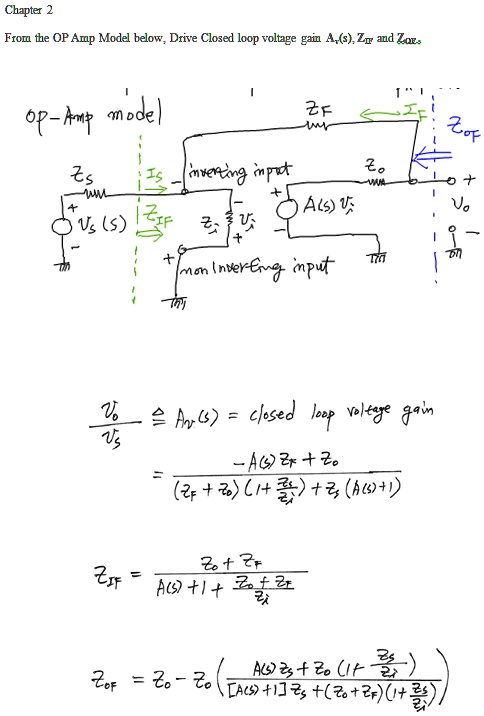 Chapter 2
From the OP Amp Model below, Drive Closed loop voltage gain Av(s), ZIF and ZOF.
OP-Amp model
ZF
IF
ZOF
Zs
Is
inverting input
Zo
+
Vs (s)
-
ZIF
-
Zi
Vi
+
+
A(s) Vi
-
+
Vo
-
+
non Inverting input
Vo/Vs ≜ Av(s) = closed loop voltage gain
= (-A(s) ZF + Zo) / ((ZF + Zo) (1 + Zs/Zi) + Zs (A(s)+1))
ZIF = (Zo + ZF) / (A(s) + 1 + (Zo + ZF)/Zi)
ZOF = Zo - Zo ( (A(s) Zs + Zo (1 + Zs/Zi)) / ([A(s) +1] Zs + (Zo + ZF) (1 + Zs/Zi)) )